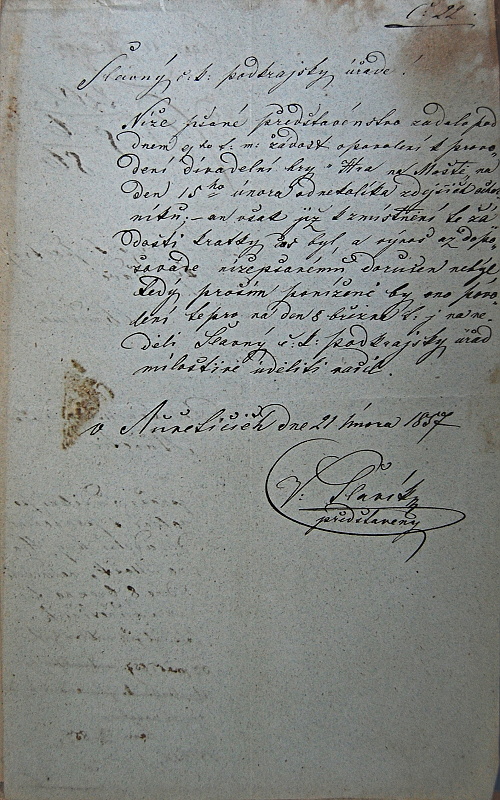 Č: 21.
Slavný c.k. podkrajský úřade!
Níže psané představenstvo zadalo pod
dnem 9 ho t: m: žádost o povolení k provo
dění divadelní hry "Hra na Moště na
den 15ho února od několika zdejších
níků; – an však již k zmíněné té žá
dosti krátký čas byl, a výnos až dopo
savade nížepsanému doručen nebyl
Tedy prosím poníženě by ono povo
lení teprv na den 8 března t: j na ne-
děli Slavný c.k: podkrajský úřad
milostivě uděliti ráčil.
v Nuřeticích dne 21 února 1857
V: Slavík
představený